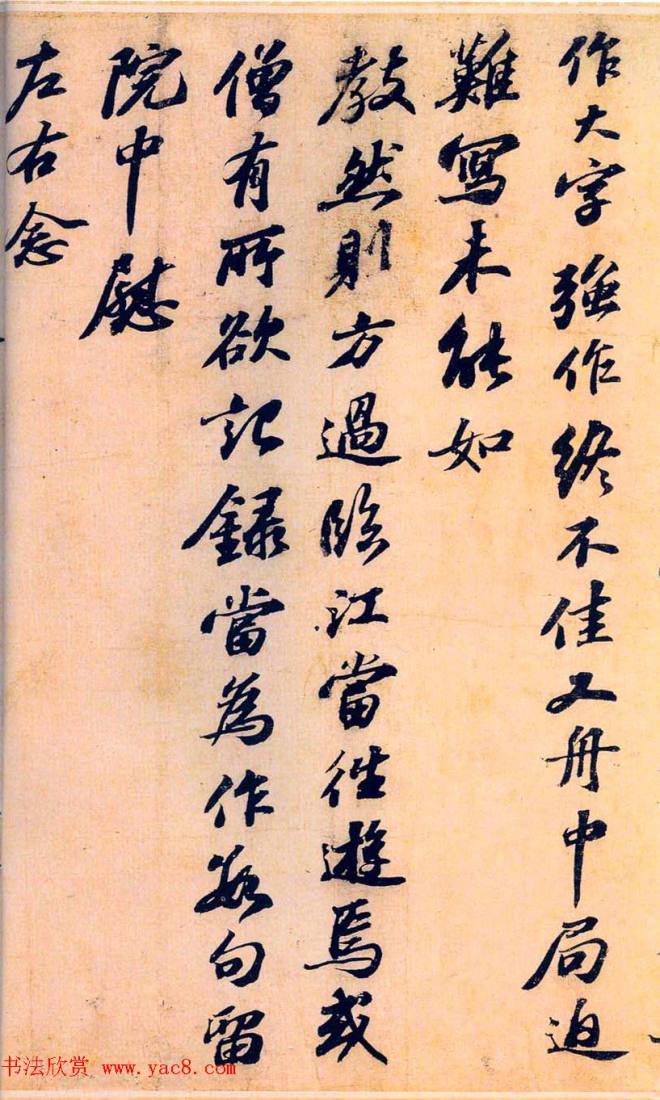 作大字強作終不佳又舟中局迫
難寫未能如
教然則方過臨江當往遊焉或
僧有所欲記錄當為作數句留
院中慰
左右念
书法欣赏 www.yac8.com